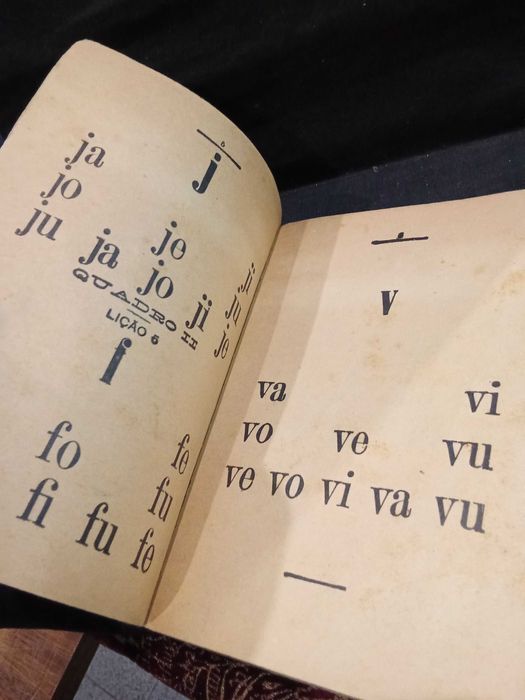 j
ja ji
jo je ju
ju ja jo ji je
QUADRO II
LIÇÃO 5
f
fe
fo fu
fi fu fe
v
va vi
vo ve vu
ve vo vi va vu